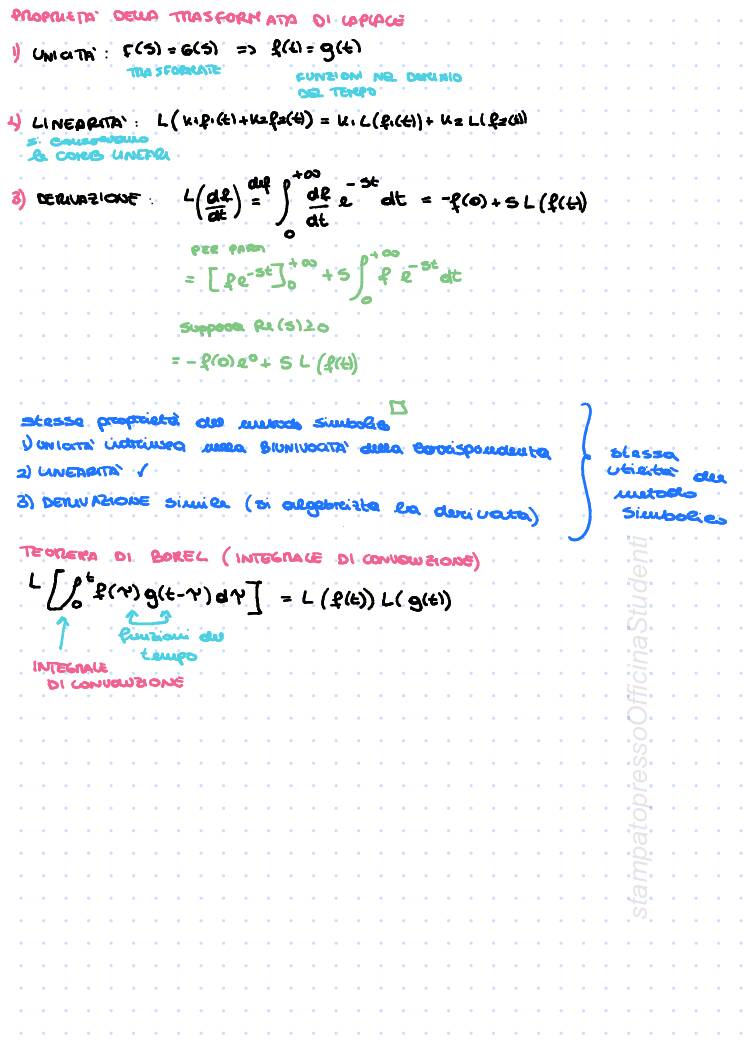 PROPRIETA' DELLA TRASFORMATA DI LAPLACE
1) UNICITA': F(S) = G(S) => f(t) = g(t)
TRASFORMATE
FUNZIONI NEL DOMINIO
DEL TEMPO
2) LINEARITA': L(k₁f₁(t)+k₂f₂(t)) = k₁L(f₁(t))+k₂L(f₂(t))
si conservano
le COMB LINEARI
3) DERIVAZIONE: L(df/dt) =^def ∫₀^{+∞} df/dt e^{-st} dt = -f(0)+SL(f(t))
PER PARTI
= [fe^{-st}]₀^{+∞} + S∫₀^{+∞} f e^{-st} dt
suppongo Re(s)≥0
= -f(0)e⁰ + S L(f(t))
stesse proprietà del metodo simbolico
1) UNICITA' intrinseca nella BIUNIVOCITA' della corrispondenza
2) LINEARITA' ✓
3) DERIVAZIONE simile (si algebrizza la derivata)
stessa
utilità del
metodo
simbolico
TEOREMA DI BOREL (INTEGRALE DI CONVOLUZIONE)
L[∫₀^t f(τ)g(t-τ)dτ] = L(f(t))L(g(t))
funzioni del
tempo
INTEGRALE
DI CONVOLUZIONE
stampatopressoOfficinaStudenti